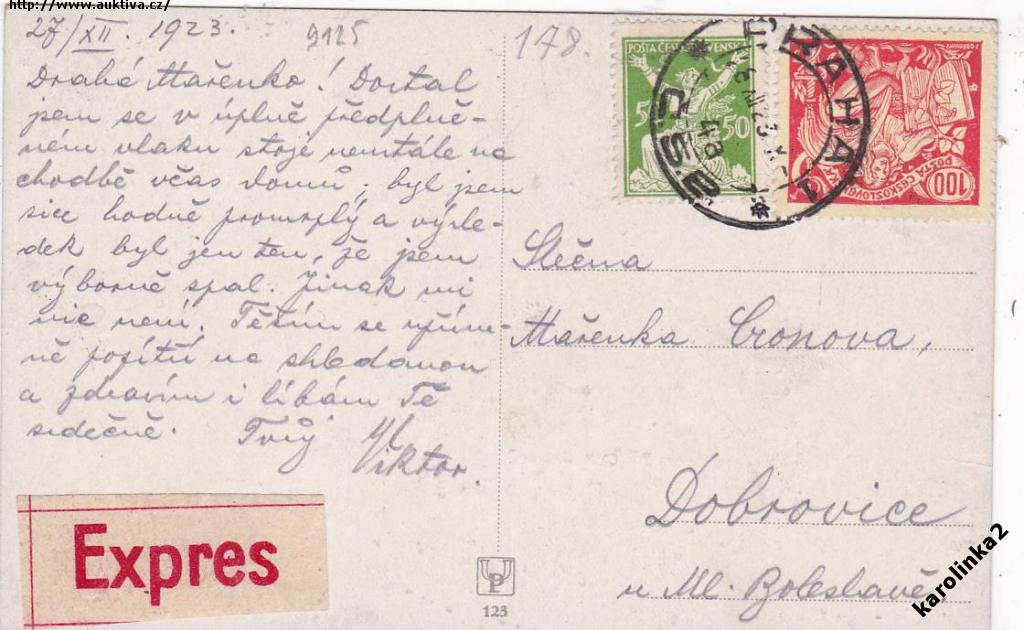 http://www.auktiva.cz/
27/XII. 1923.
9125
178.
Drahá Mařenko! Dostal
jsem se v úplně předplně-
ném vlaku stoje neustále na
chodbě včas domů; byl jsem
sice hodně promrzlý a výsle-
dek byl jen ten, že jsem
výborně spal. Jinak mi
nic není. Těším se
na shledanou
a zdravím i líbám Tě
srdečně. Tvůj
Viktor.
Expres
POŠTA ČESKOSLOVENSKÁ
50 50
PRAHA 1
POŠTA ČESKOSLOVENSKÁ
100
Slečna
Mařenka Cronova,
Dobrovice
u Ml. Boleslavě.
UP
123
karolinka2